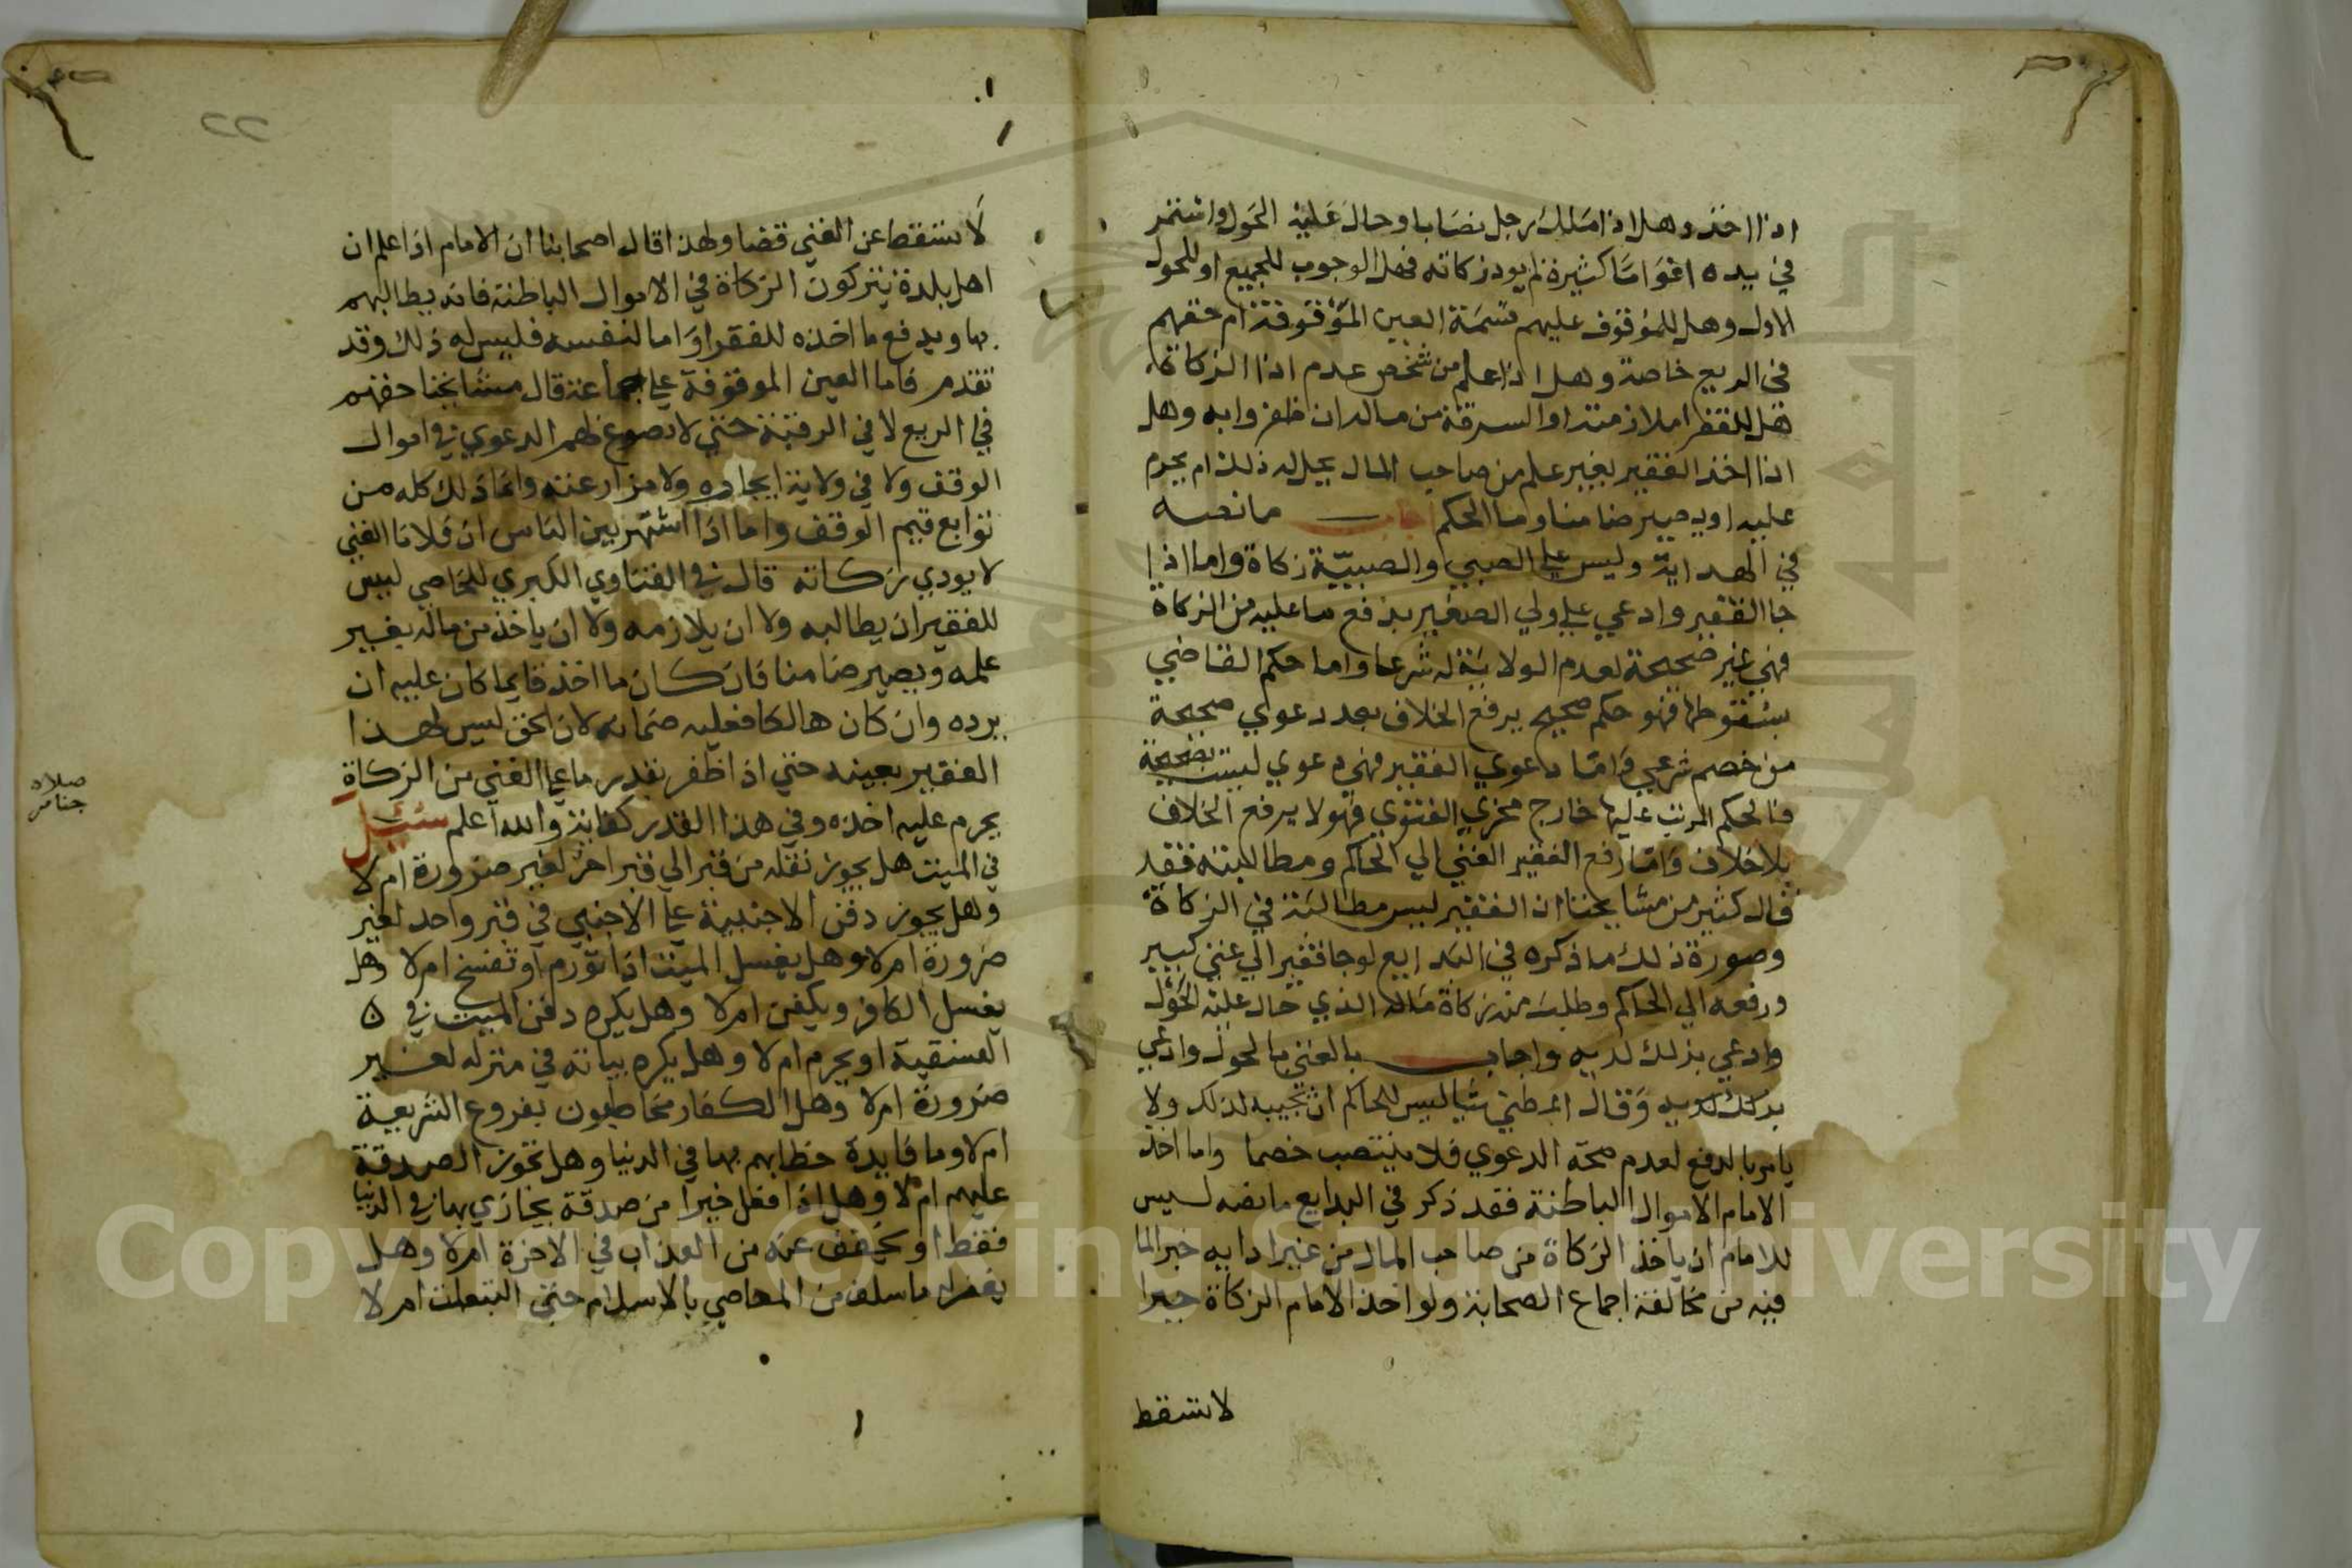 اذا اخذ وهل اذا ملك رجل نصابا وحال عليه الحول واستمر
في يده اعواما كثيرة لم يود زكاته فهل الوجوب للجميع او للحول
الاول وهل للموقوف عليهم قسمة العين الموقوفة ام حقهم
في الريع خاصة وهل اذا علم من شخص عدم اداا الزكاة
هل للفقرا ملازمته او السرقة من ماله ان ظفروا به وهل
اذا اخذ الفقير بغير علم من صاحب المال يحل له ذلك ام يحرم
عليه او يصير ضامنا وما الحكم اجاب ما نصه
في الهداية وليس علي الصبي والصبيّة زكاة واما اذا
جا الفقير وادعي علي ولي الصغير بدفع ما عليه من الزكاة
فهي غير صحيحة لعدم الولاية له شرعا واما حكم القاضي
بسقوطها فهو حكم صحيح يرفع الخلاف بعد دعوي صحيحة
من خصم شرعي واما دعوي الفقير فهي دعوي ليست بصحيحة
فالحكم المرتب عليها خارج مخرج الفتوي فهو لا يرفع الخلاف
بلا خلاف واما رفع الفقير الغني الي الحاكم ومطالبته فقد
قال كثير من مشايخنا ان الفقير ليس مطالبته في الزكاة
وصورة ذلك ما ذكره في البدايع لو جا فقير الي غني كبير
ورفعه الي الحاكم وطلب منه زكاة ماله الذي حال عليه الحول
وادعي بذلك لديه واجاب بالغني بالحول وادعي
بذلك لديه وقال اعطني شيا ليس للحاكم ان يجيبه لذلك ولا
يامر بالدفع لعدم صحة الدعوي فلا ينتصب خصما واما اخذ
الامام الاموال الباطنة فقد ذكر في البدايع ما نصه ليس
للامام ان ياخذ الزكاة من صاحب المال من غير ادايه جبرا لما
فيه من مخالفة اجماع الصحابة ولو اخذ الامام الزكاة جبرا
لا تسقط
٢٢
لا تسقط عن الغني قضا ولهذا قال اصحابنا ان الامام اذا علم ان
اهل بلدة يتركون الزكاة في الاموال الباطنة فانه يطالبهم
بها ويدفع ما اخذه للفقرا واما لنفسه فليس له ذلك وقد
تقدم فاما العين الموقوفة علي جماعة قال مشايخنا حقهم
في الريع لا في الرقبة حتي لا تصوغ لهم الدعوي في اموال
الوقف ولا في ولاية ايجاره ولا مزارعته وانما ذلك كله من
توابع قيم الوقف واما اذا اشتهر بين الناس ان فلانا الغني
لا يودي زكاته قال في الفتاوي الكبري للخاصي ليس
للفقير ان يطالبه ولا ان يلازمه ولا ان ياخذ من ماله بغير
علمه ويصير ضامنا فان كان ما اخذ قايما كان عليه ان
يرده وان كان هالكا فعليه ضمانه لان الحق ليس لهذا
الفقير بعينه حتي اذا ظفر بقدر ما علي الغني من الزكاة
يحرم عليه اخذه وفي هذا القدر كفاية والله اعلم سئل
صلاة
جنايز
في الميت هل يجوز نقله من قبر الي قبر اخر لغير ضرورة ام لا
وهل يجوز دفن الاجنبية علي الاجنبي في قبر واحد لغير
ضرورة ام لا وهل يغسل الميت اذا تورم او تفسخ ام لا وهل
يغسل الكافر ويكفن ام لا وهل يكره دفن الميت في
الفسقية او يحرم ام لا وهل يكره بياته في منزله لغير
ضرورة ام لا وهل الكفار مخاطبون بفروع الشريعة
ام لا وما فايدة خطابهم بها في الدنيا وهل تجوز الصدقة
عليهم ام لا وهل اذا فعل خيرا من صدقة يجازي بها في الدنيا
فقط او يخفف عنه من العذاب في الاخرة ام لا وهل
يغفر له ما سلف من المعاصي بالاسلام حتي التبعات ام لا
Copyright © King Saud University